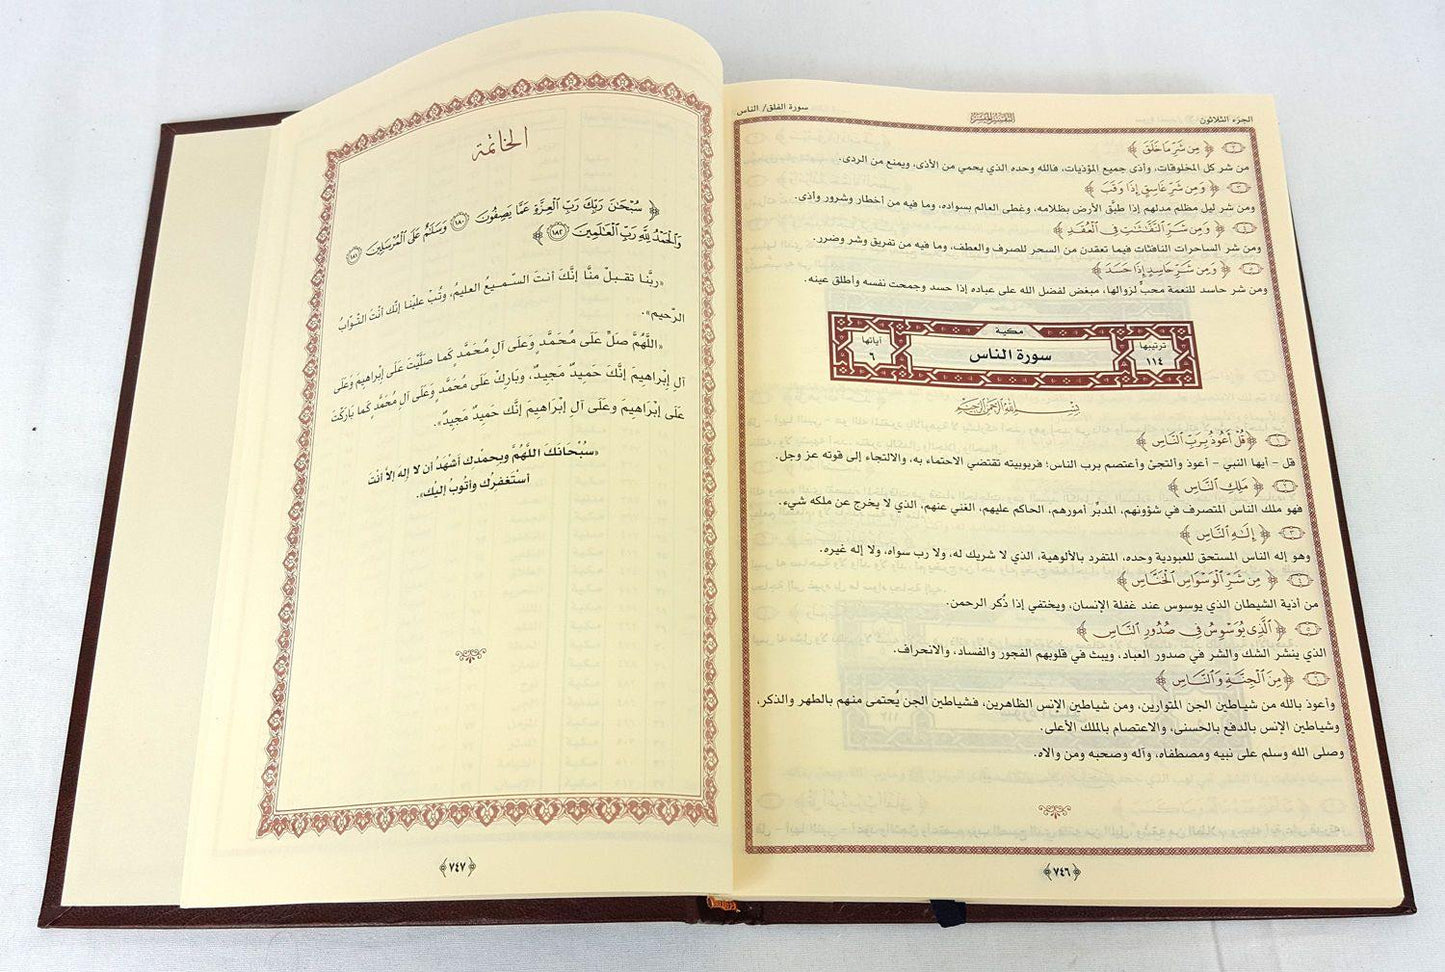 الجزء الثلاثون
التفسير الميسر
سورة الفلق/ الناس
﴿ مِن شَرِّ مَا خَلَقَ ﴾ ٢
من شر كل المخلوقات، وأذى جميع المؤذيات، فالله وحده الذي يحمي من الأذى، ويمنع من الردى.
﴿ وَمِن شَرِّ غَاسِقٍ إِذَا وَقَبَ ﴾ ٣
ومن شر ليل مظلم مدلهم إذا طبَّق الأرض بظلامه، وغطى العالم بسواده، وما فيه من أخطار وشرور وأذى.
﴿ وَمِن شَرِّ ٱلنَّفَّٰثَٰتِ فِي ٱلْعُقَدِ ﴾ ٤
ومن شر الساحرات النافثات فيما تعقدن من السحر للصرف والعطف، وما فيه من تفريق وشر وضرر.
﴿ وَمِن شَرِّ حَاسِدٍ إِذَا حَسَدَ ﴾ ٥
ومن شر حاسد للنعمة محبٍّ لزوالها، مبغض لفضل الله على عباده إذا حسد وجمحت نفسه وأطلق عينه.
مكية
ترتيبها ١١٤
سورة الناس
آياتها ٦
بِسْمِ ٱللَّهِ ٱلرَّحْمَٰنِ ٱلرَّحِيمِ
﴿ قُلْ أَعُوذُ بِرَبِّ ٱلنَّاسِ ﴾ ١
قل - أيها النبي - أعوذ وألتجئ وأعتصم برب الناس؛ فربوبيته تقتضي الاحتماء به، والالتجاء إلى قوته عز وجل.
﴿ مَلِكِ ٱلنَّاسِ ﴾ ٢
فهو ملك الناس المتصرف في شؤونهم، المدبِّر أمورهم، الحاكم عليهم، الغني عنهم، الذي لا يخرج عن ملكه شيء.
﴿ إِلَٰهِ ٱلنَّاسِ ﴾ ٣
وهو إله الناس المستحق للعبودية وحده، المتفرد بالألوهية، الذي لا شريك له، ولا رب سواه، ولا إله غيره.
﴿ مِن شَرِّ ٱلْوَسْوَاسِ ٱلْخَنَّاسِ ﴾ ٤
من أذية الشيطان الذي يوسوس عند غفلة الإنسان، ويختفي إذا ذُكر الرحمن.
﴿ ٱلَّذِي يُوَسْوِسُ فِي صُدُورِ ٱلنَّاسِ ﴾ ٥
الذي ينشر الشك والشر في صدور العباد، ويبث في قلوبهم الفجور والفساد، والانحراف.
﴿ مِنَ ٱلْجِنَّةِ وَٱلنَّاسِ ﴾ ٦
وأعوذ بالله من شياطين الجن المتوارين، ومن شياطين الإنس الظاهرين، فشياطين الجن يُحتمى منهم بالطهر والذكر،
وشياطين الإنس بالدفع بالحسنى، والاعتصام بالملك الأعلى.
وصلى الله وسلم على نبيه ومصطفاه، وآله وصحبه ومن والاه.
﴿٧٤٦﴾
الخاتمة
﴿ سُبْحَٰنَ رَبِّكَ رَبِّ ٱلْعِزَّةِ عَمَّا يَصِفُونَ ١٨٠ وَسَلَٰمٌ عَلَى ٱلْمُرْسَلِينَ ١٨١
وَٱلْحَمْدُ لِلَّهِ رَبِّ ٱلْعَٰلَمِينَ ١٨٢ ﴾
«ربَّنا تقبـلْ منَّا إنَّكَ أنتَ السَّـميعُ العليمُ، وتُبْ علينا إنَّك أنتَ التَّوَّابُ
الرَّحيم».
«اللَّهُمَّ صلِّ عَلَى مُحَمَّدٍ وَعَلَى آلِ مُحَمَّدٍ كَما صَلَّيْتَ عَلَى إبْراهيمَ وَعَلَى
آلِ إبْراهيمَ إنَّكَ حَميدٌ مَجيدٌ، وبَارِكْ عَلَى مُحَمَّدٍ وَعَلَى آلِ مُحَمَّدٍ كَمَا بَارَكْتَ
عَلَى إبْرَاهيمَ وَعَلَى آلِ إبْرَاهِيمَ إنَّك حَمِيدٌ مَجِيدٌ».
«سُبْحَانَكَ اللَّهُمَّ وبِحمَدِك أشْهَدُ أن لا إلهَ إلاَّ أنْتَ
أسْتَغفِرُك وأتُوبُ إليْك».
﴿٧٤٧﴾